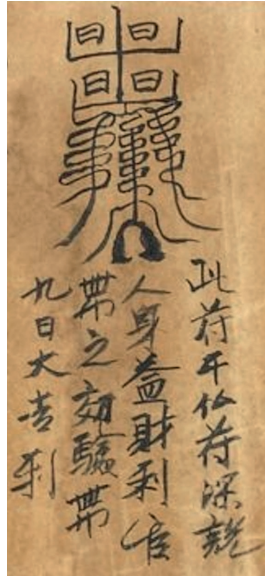 此符千仏符深
人身益財利
帶之効驗帶
九日大吉利